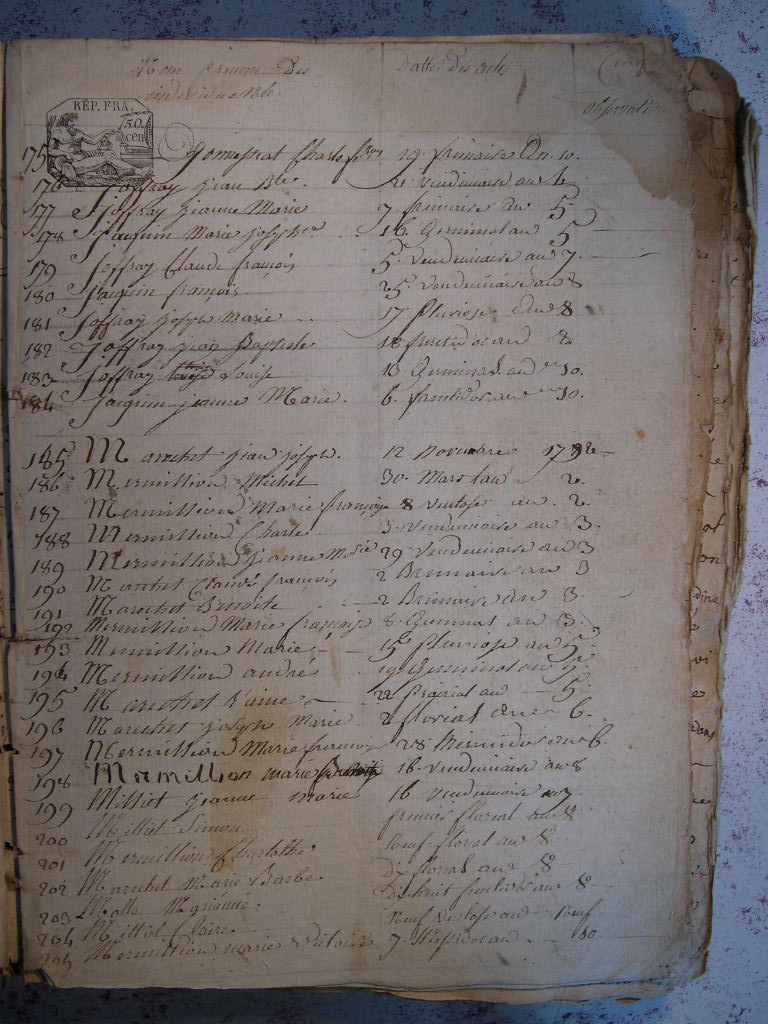 Nom prenom Des Dattes Des actes Cinq
individue Née observation
RÉP. FRA.
50
cen
175 Gomestrat Charle 19 frimaire An 10.
176 Joffray jean Bte. 21 vendemiaire an 6
177 Joffray jeanne Marie 7 frimaire an 5
178 Jaquin Marie josephte 16 Germinal an 5
179 Joffray Claude françois 5 vendemiaire an 7.
180 Jaquin françois 25 vendemiaire an 8
181 Joffray joseph Marie 17 pluviose an 8
182 Joffray jean Baptiste 18 fructidor an 2.
183 Joffray Louise 13 Germinal an 10.
184 Jaquin jeanne Marie. 6. an 10.
185 Marechet jean joseph. 12 Novembre 1792
186 Mermillion Michel 30 Mars an 2
187 Mermillion Marie françoise 8 ventose an 2.
188 Mermillion Charle. 3 vendemiaire an 3.
189 Mermillion jeanne Marie 29 vendemiaire an 3
190 Marechet Claude françois 2 Brumaire an 3
191 Marechet Benoite 2 Brumaire an 3.
192 Mermillion Marie françoise 8 Germinal an 3.
193 Mermillion Marie 15 pluviose an 5
194 Mermillion andré 19 Germinal an 5.
195 Marechet 22 prairial an 5.
196 Marechet joseph Marie 2 florial an 6.
197 Mermillion Marie françoise 28 an 6.
198 Mermillion marie 16 vendemiaire an 8
199 Milliet jeanne marie 16 vendemiaire an 7
200 Milliet Simon premier florial an 8
201 Mermillion Charlotte Neuf florial an 8
202 Marechet Marie Barbe. Dix florial an 8
203 Molle Marianne. Dixhuit fructidor an 8
204 Milliet Claire. Neuf ventose an Neuf
205 Mermillion marie victoire 7 an 10